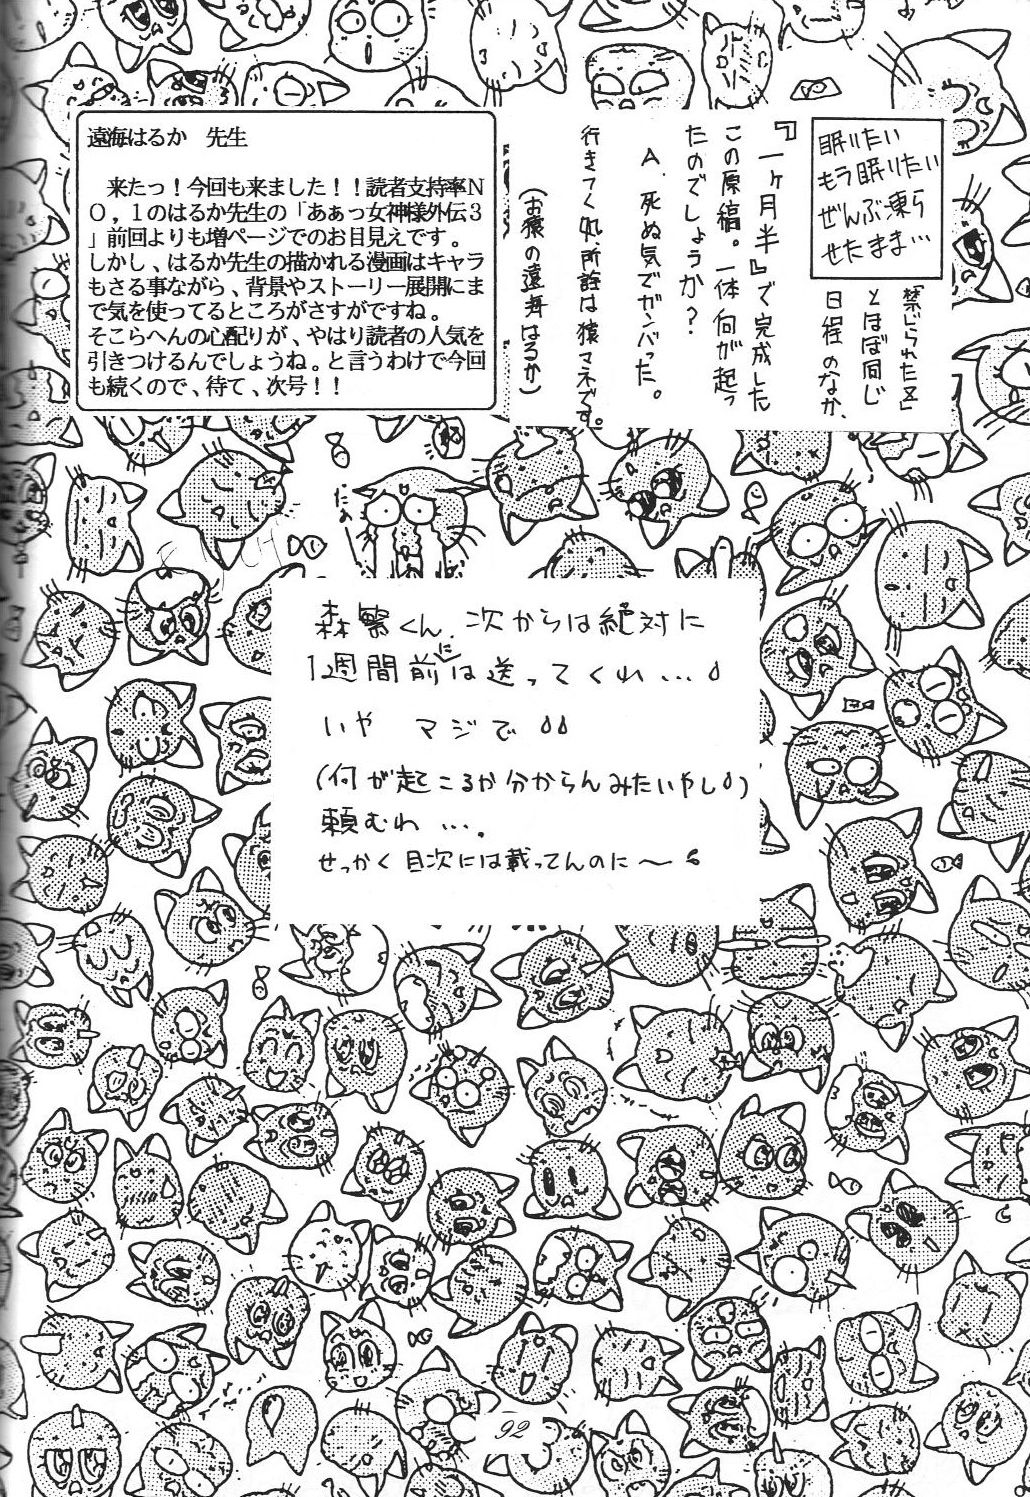 遠海はるか　先生
　来たっ！今回も来ました！！読者支持率Ｎ
Ｏ，１のはるか先生の「あぁっ女神様外伝３
」前回よりも増ページでのお目見えです。
しかし、はるか先生の描かれる漫画はキャラ
もさる事ながら、背景やストーリー展開にま
で気を使ってるところがさすがですね。
そこらへんの心配りが、やはり読者の人気を
引きつけるんでしょうね。と言うわけで今回
も続くので、待て、次号！！
眠りたい
もう眠りたい
ぜんぶ凍ら
せたまま…
「禁じられた区」
とほぼ同じ
日程のなか、
『一ヶ月半』で完成した
この原稿。一体何が起っ
たのでしょうか？
A. 死ぬ気でガンバった。
行きてく処所詮は猿マネです。
（お猿の遠海はるか）
森繁くん、次からは絶対に
1週間前には送ってくれ…
いや マジで
（何が起こるか分からんみたいやし）
頼むわ…。
せっかく目次には載ってんのに〜
92